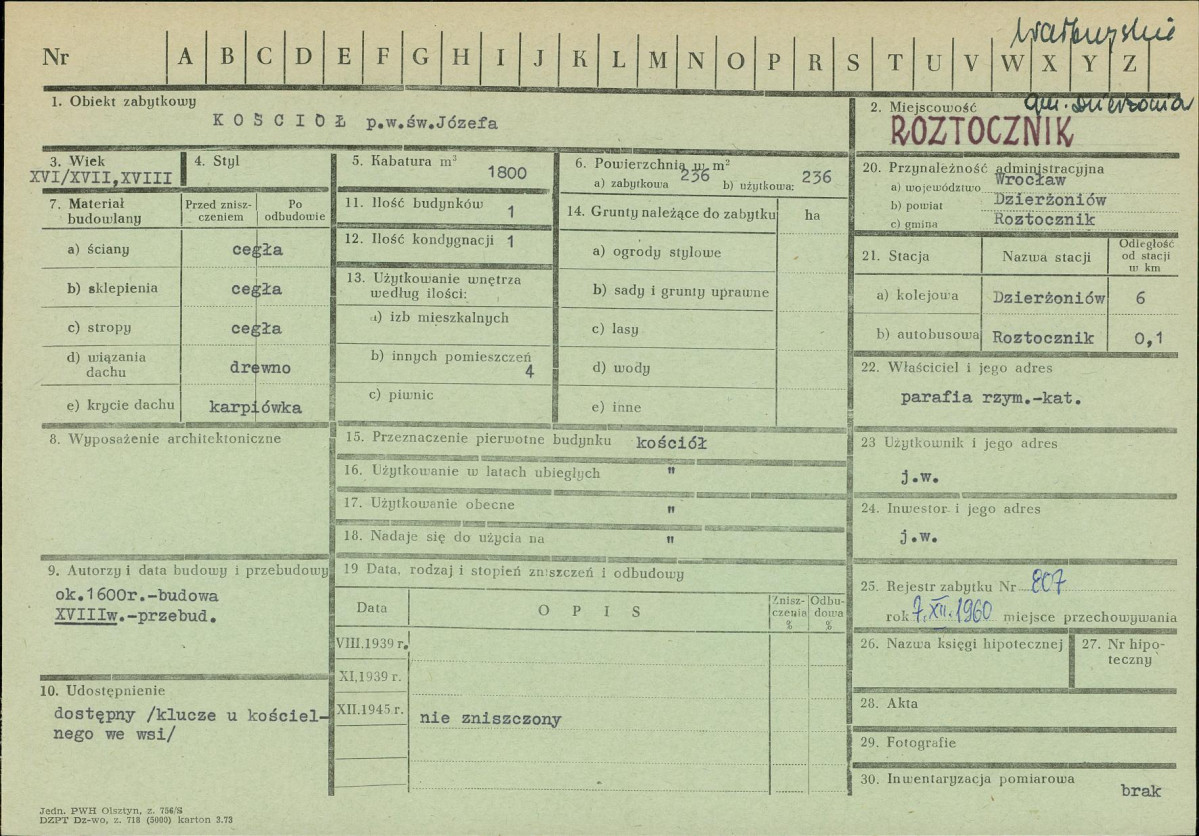 Wałbrzyskie
Nr A B C D E F G H I J K L M N O P R S T U V W X Y Z
1. Obiekt zabytkowy
KOŚCIÓŁ p.w.św.Józefa
gm. Dzierżoniów
2. Miejscowość
ROZTOCZNIK
3. Wiek
XVI/XVII,XVIII
4. Styl
5. Kabatura m³
1800
6. Powierzchnia w m²
a) zabytkowa 236 b) użytkowa: 236
20. Przynależność administracyjna
a) województwo Wrocław
b) powiat Dzierżoniów
c) gmina Roztocznik
7. Materiał budowlany
Przed znisz-
czeniem
Po
odbudowie
a) ściany cegła
b) sklepienia cegła
c) stropy cegła
d) wiązania
dachu drewno
e) krycie dachu karpiówka
11. Ilość budynków 1
12. Ilość kondygnacji 1
13. Użytkowanie wnętrza
według ilości:
a) izb mieszkalnych
b) innych pomieszczeń
4
c) piwnic
14. Grunty należące do zabytku ha
a) ogrody stylowe
b) sady i grunty uprawne
c) lasy
d) wody
e) inne
21. Stacja Nazwa stacji
Odległość
od stacji
w km
a) kolejowa Dzierżoniów 6
b) autobusowa Roztocznik 0,1
22. Właściciel i jego adres
parafia rzym.-kat.
8. Wyposażenie architektoniczne
15. Przeznaczenie pierwotne budynku kościół
16. Użytkowanie w latach ubiegłych "
17. Użytkowanie obecne "
18. Nadaje się do użycia na "
23 Użytkownik i jego adres
j.w.
24. Inwestor i jego adres
j.w.
9. Autorzy i data budowy i przebudowy
ok.1600r.-budowa
XVIIIw.-przebud.
19 Data, rodzaj i stopień zniszczeń i odbudowy
Data OPIS
Znisz-
czenia
%
Odbu-
dowa
%
VIII.1939 r.
XI,1939 r.
XII.1945 r. nie zniszczony
25. Rejestr zabytku Nr 807
rok 7.XII.1960 miejsce przechowywania
26. Nazwa księgi hipotecznej
27. Nr hipo-
teczny
10. Udostępnienie
dostępny /klucze u kościel-
nego we wsi/
28. Akta
29. Fotografie
30. Inwentaryzacja pomiarowa
brak
Jedn. PWH Olsztyn, z. 756/S
DZPT Dz-wo, z. 718 (5000) karton 3.73